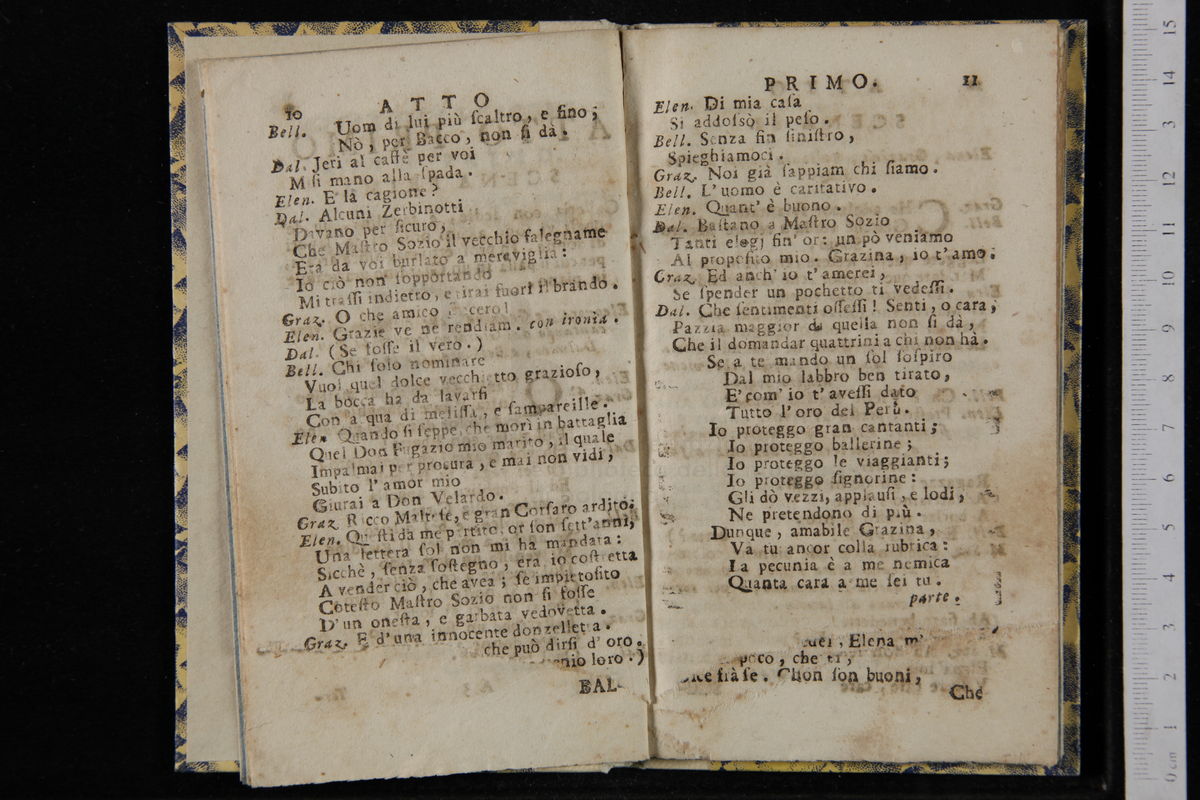 10 ATTO
Bell. Uom di lui più ſcaltro, e fino;
Nò, per Bacco, non ſi dà.
Dal. Jeri al caffè per voi
Miſi mano alla ſpada.
Elen. E la cagione?
Dal. Alcuni Zerbinotti
Davano per ſicuro,
Che Maſtro Sozio il vecchio falegname
Era da voi burlato a meraviglia:
Io ciò non ſopportando
Mi traſſi indietro, e tirai fuori il brando.
Graz. O che amico ſincero!
Elen. Grazie ve ne rendiam. con ironia.
Dal. (Se foſſe il vero.)
Bell. Chi ſolo nominare
Vuol quel dolce vecchietto grazioſo,
La bocca ha da lavarſi
Con acqua di meliſſa, e ſampareille.
Elen. Quando ſi ſeppe, che morì in battaglia
Quel Don Fugazio mio marito, il quale
Impalmai per procura, e mai non vidi,
Subito l'amor mio
Giurai a Don Velardo.
Graz. Ricco Malteſe, e gran Corſaro ardito.
Elen. Queſti da me partito, or ſon ſett'anni,
Una lettera ſol non mi ha mandata:
Sicchè, ſenza ſoſtegno, era io coſtretta
A vender ciò, che avea; ſe impietoſito
Coteſto Maſtro Sozio non ſi foſſe
D'un oneſta, e garbata vedovetta.
Graz. E d'una innocente donzelletta.
che può dirſi d'oro.
loro.)
BAL-
PRIMO. 11
Elen. Di mia caſa
Si addoſsò il peſo.
Bell. Senza fin ſiniſtro,
Spieghiamoci.
Graz. Noi già ſappiam chi ſiamo.
Bell. L'uomo è caritativo.
Elen. Quant' è buono.
Dal. Baſtano a Maſtro Sozio
Tanti elogj fin' or: un pò veniamo
Al propoſito mio. Grazina, io t'amo.
Graz. Ed anch' io t'amerei,
Se ſpender un pochetto ti vedeſſi.
Dal. Che ſentimenti oſſeſſi! Senti, o cara,
Pazzia maggior di quella non ſi dà,
Che il domandar quattrini a chi non hà.
Se a te mando un ſol ſoſpiro
Dal mio labbro ben tirato,
E' com' io t'aveſſi dato
Tutto l'oro del Perù.
Io proteggo gran cantanti;
Io proteggo ballerine;
Io proteggo le viaggianti;
Io proteggo ſignorine:
Gli dò vezzi, applauſi, e lodi,
Ne pretendono di più.
Dunque, amabile Grazina,
Va tu ancor colla rubrica:
La pecunia è a me nemica
Quanta cara a me ſei tu.
parte.
Elena m'
poco, che
ſon buoni,
Che